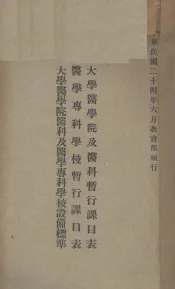 民國二十四年六月教育部頒行
大學醫學院及醫科暫行課目表
醫學專科學校暫行課目表
大學醫學院醫科及醫學專科學校設備標準